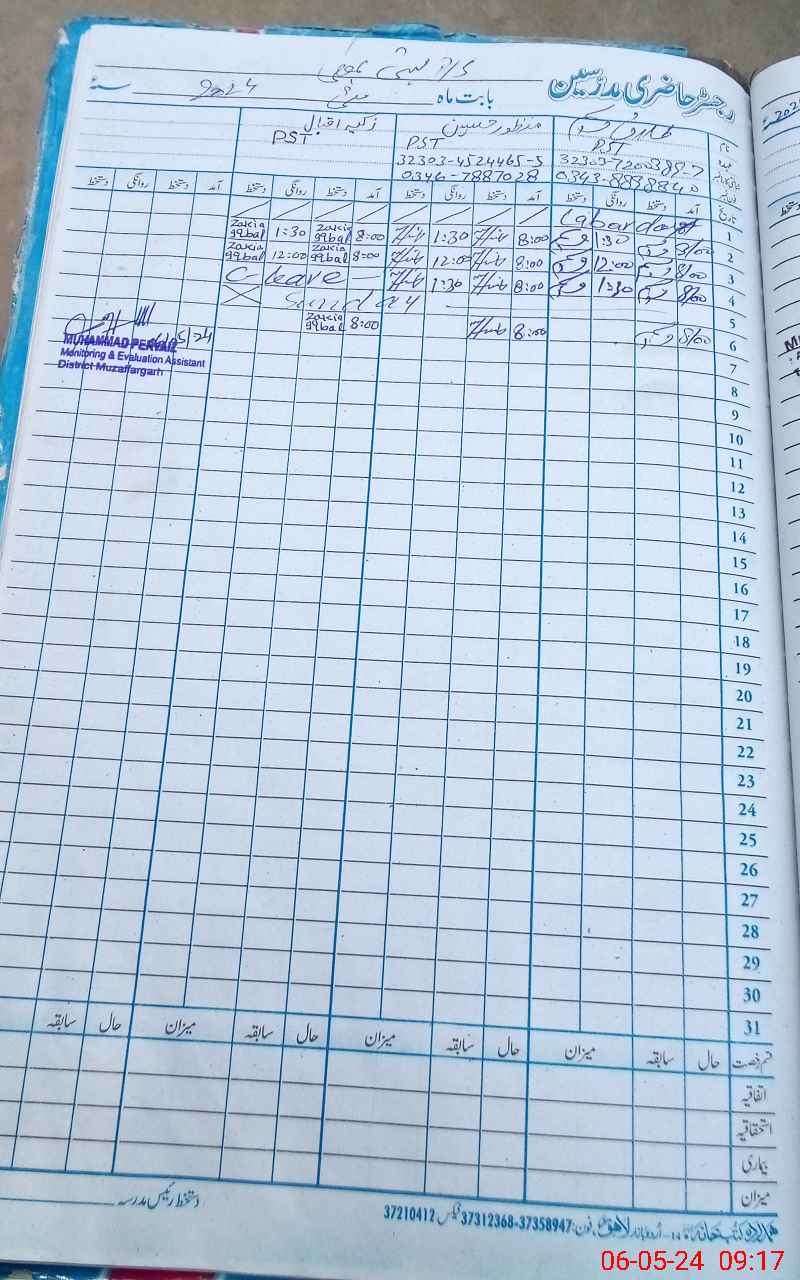 رجسٹر حاضری مدرسین
بابت ماہ مئی 2024 سنہ
نام منظور حسین زکیہ اقبال
عہدہ PST PST PST
32303-7200385-7 32303-4524465-5
0343-8838840 0346-7887028
تاریخ آمد دستخط روانگی دستخط آمد دستخط روانگی دستخط آمد دستخط روانگی دستخط آمد دستخط روانگی دستخط
1 Labarday
2 8/00 1:30 8:00 1:30 8:00 Zakia Iqbal 1:30 Zakia Iqbal
3 8/00 12:00 8:00 12:00 8:00 Zakia Iqbal 12:00 Zakia Iqbal
4 8/00 1:30 8:00 1:30 C-leave
5 Sunday
6 8/00 8:00 8:00 Zakia Iqbal
MUHAMMAD PERVAIZ
Monitoring & Evaluation Assistant
District Muzaffargarh
7
8
9
10
11
12
13
14
15
16
17
18
19
20
21
22
23
24
25
26
27
28
29
30
31
قسم رخصت حال سابقہ میزان حال سابقہ میزان حال سابقہ میزان حال سابقہ
اتفاقیہ
استحقاقیہ
بیماری
میزان
دستخط رئیس مدرسہ
ہمدرد کتب خانہ اردو بازار لاہور فون: 37358947-37312368 فیکس 37210412
06-05-24 09:17